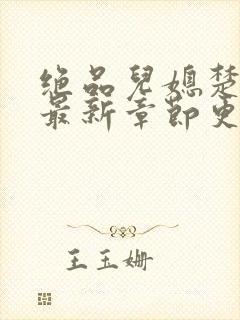 绝品儿媳楚
最新章节更
王玉姗